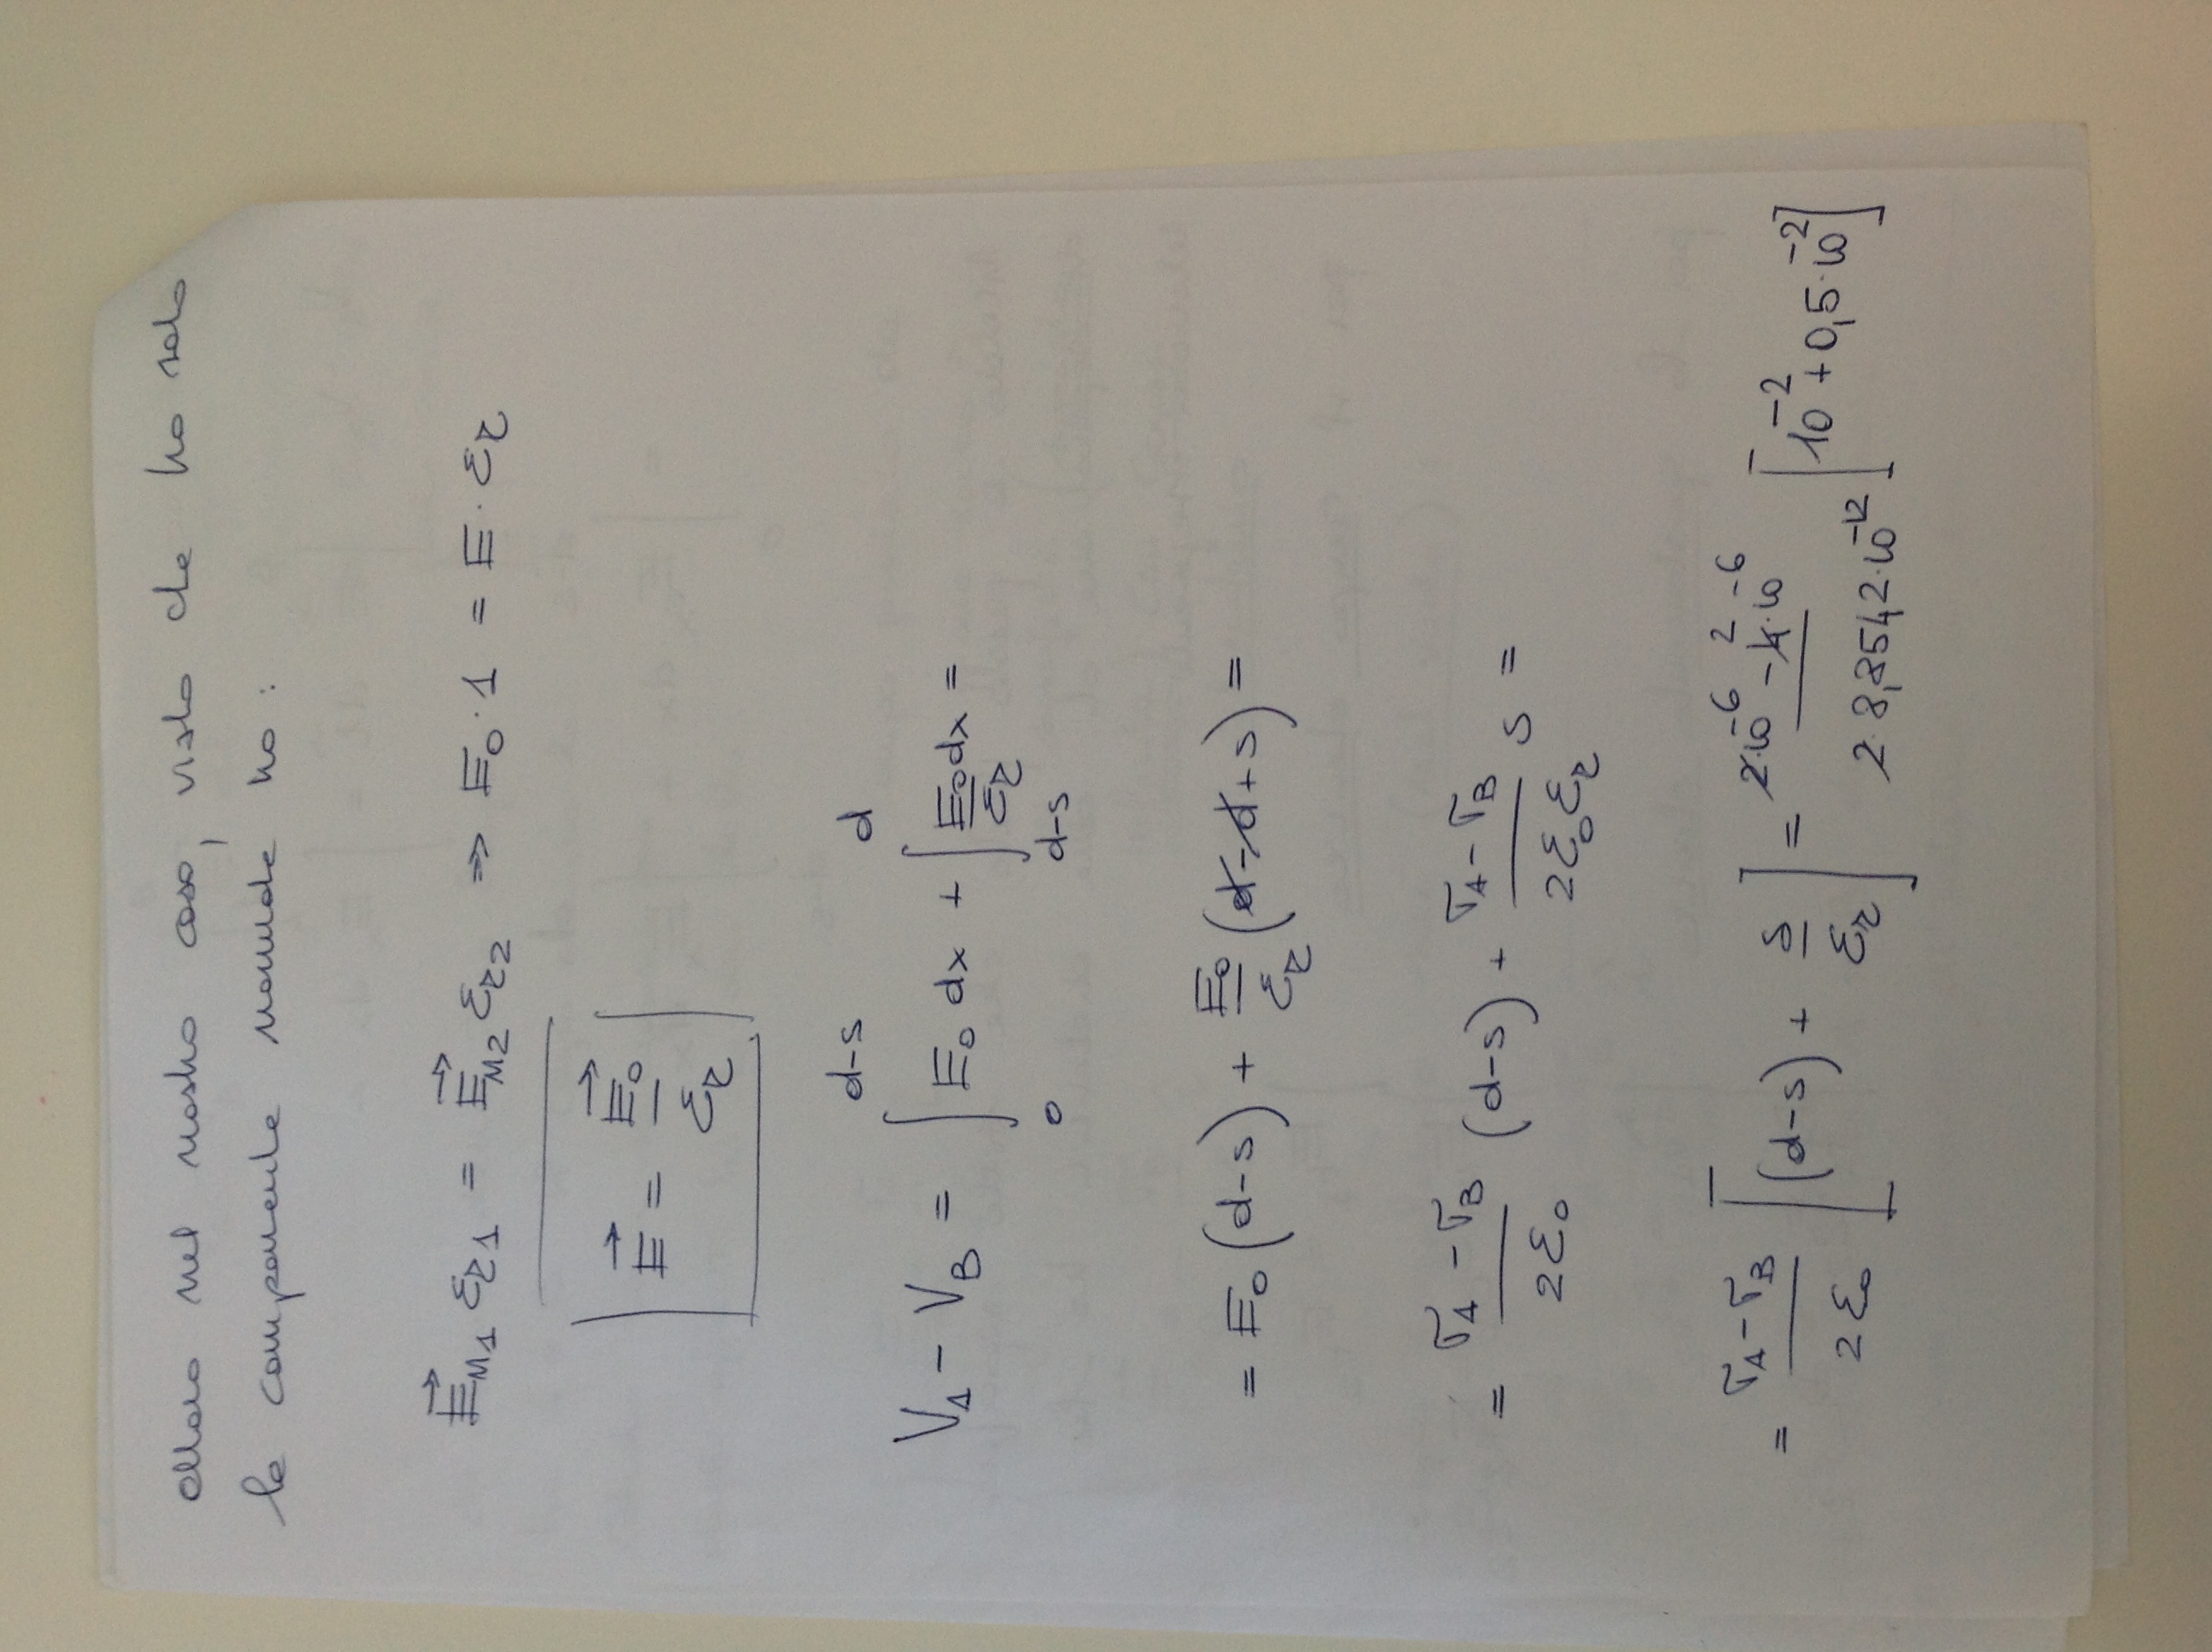 allora nel nostro caso, visto che ho solo
la componente normale ho:
E⃗n1 εr1 = E⃗n2 εr2 ⇒ E0 · 1 = E · εr
E⃗ = E⃗0 / εr
VA - VB = ∫_0^{d-s} E0 dx + ∫_{d-s}^{d} E0/εr dx =
= E0 (d-s) + E0/εr (d-d+s) =
= (σA - σB)/(2ε0) (d-s) + (σA - σB)/(2ε0εr) s =
= (σA - σB)/(2ε0) [(d-s) + s/εr] = (2·10^-6 - 4·10^-6 2)/(2·8,8542·10^-12) [10^-2 + 0,5·10^-2]